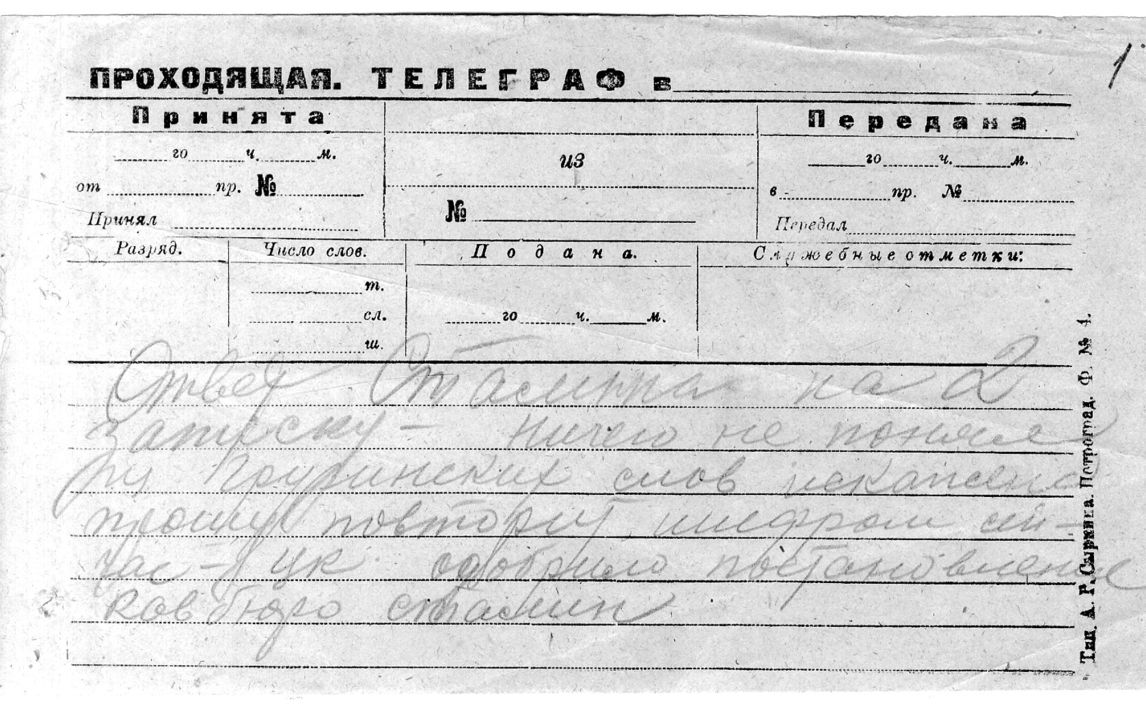 1
ПРОХОДЯЩАЯ. ТЕЛЕГРАФ в
Принята
го ч. м.
от пр. №
Принял
из
№
Передана
го ч. м.
в пр. №
Передал
Разряд.
Число слов.
т.
сл.
ш.
Подана.
го ч. м.
Служебные отметки:
Ответ Сталина на 2
записку – ничего не понял
из грузинских слов искажено
прошу повторит шифром сей-
час – ЦК одобрило постановление
Кавбюро сталин
Тип. А. Р. Сыркина. Петроград. Ф. № 4.